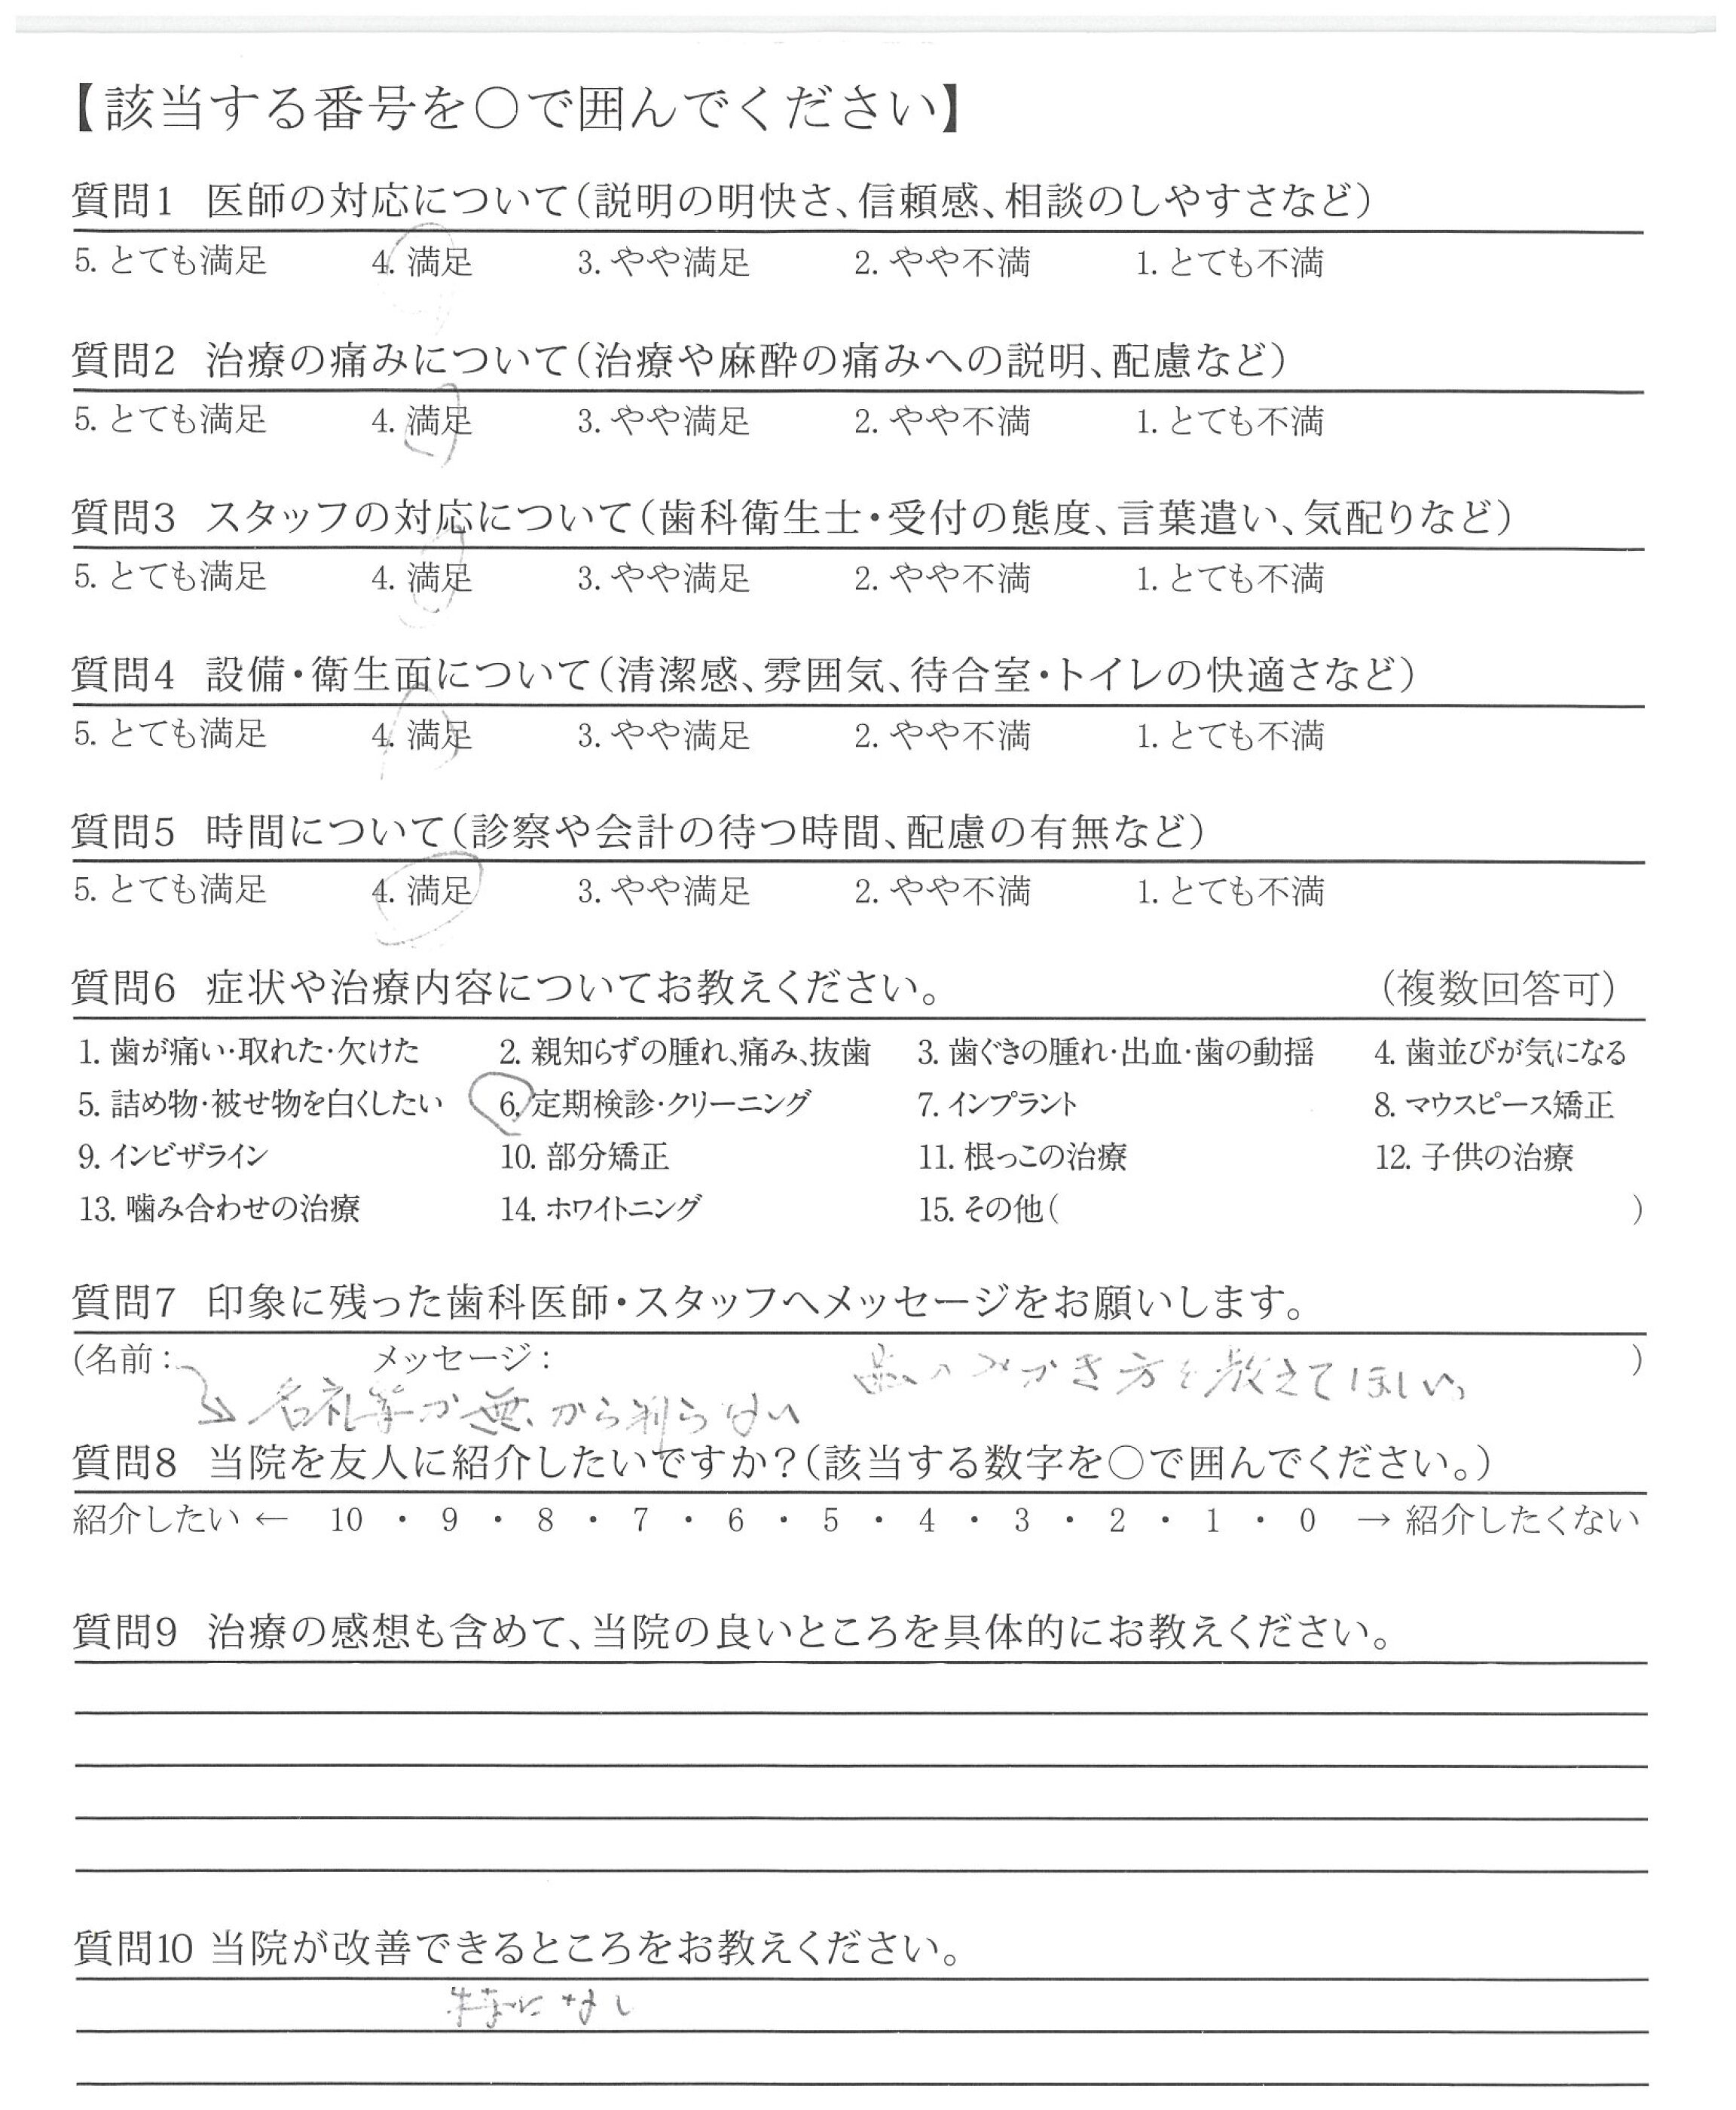 【該当する番号を○で囲んでください】
質問1 医師の対応について(説明の明快さ、信頼感、相談のしやすさなど)
5. とても満足 4. 満足 3. やや満足 2. やや不満 1. とても不満
質問2 治療の痛みについて(治療や麻酔の痛みへの説明、配慮など)
5. とても満足 4. 満足 3. やや満足 2. やや不満 1. とても不満
質問3 スタッフの対応について(歯科衛生士・受付の態度、言葉遣い、気配りなど)
5. とても満足 4. 満足 3. やや満足 2. やや不満 1. とても不満
質問4 設備・衛生面について(清潔感、雰囲気、待合室・トイレの快適さなど)
5. とても満足 4. 満足 3. やや満足 2. やや不満 1. とても不満
質問5 時間について(診察や会計の待つ時間、配慮の有無など)
5. とても満足 4. 満足 3. やや満足 2. やや不満 1. とても不満
質問6 症状や治療内容についてお教えください。 (複数回答可)
1. 歯が痛い・取れた・欠けた 2. 親知らずの腫れ、痛み、抜歯 3. 歯ぐきの腫れ・出血・歯の動揺 4. 歯並びが気になる
5. 詰め物・被せ物を白くしたい 6. 定期検診・クリーニング 7. インプラント 8. マウスピース矯正
9. インビザライン 10. 部分矯正 11. 根っこの治療 12. 子供の治療
13. 噛み合わせの治療 14. ホワイトニング 15. その他( )
質問7 印象に残った歯科医師・スタッフへメッセージをお願いします。
(名前: メッセージ: 歯のみがき方を教えてほしい。 )
↘ 名札等が無いから判らない
質問8 当院を友人に紹介したいですか?(該当する数字を○で囲んでください。)
紹介したい ← 10 ・ 9 ・ 8 ・ 7 ・ 6 ・ 5 ・ 4 ・ 3 ・ 2 ・ 1 ・ 0 → 紹介したくない
質問9 治療の感想も含めて、当院の良いところを具体的にお教えください。
質問10 当院が改善できるところをお教えください。
特になし